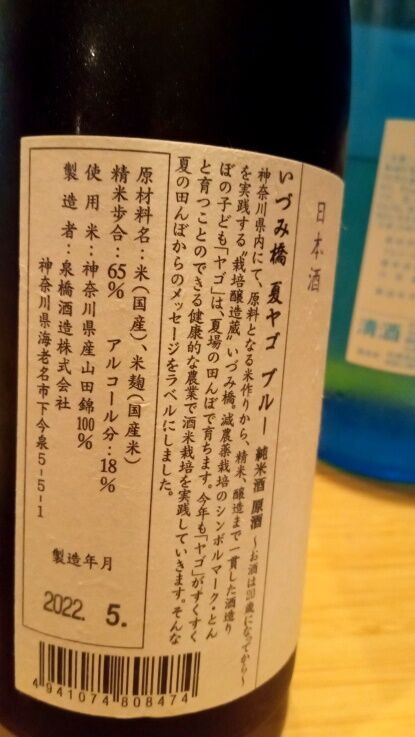 日本酒
いづみ橋 夏ヤゴ ブルー 純米酒 原酒 ～お酒は20歳になってから～
神奈川県内にて、原料となる米作りから、精米、醸造まで一貫した酒造り
を実践する"栽培醸造蔵"いづみ橋。減農薬栽培のシンボルマーク・とん
ぼの子ども「ヤゴ」は、夏場の田んぼで育ちます。今年も「ヤゴ」がすくすく
と育つことのできる健康的な農業で酒米栽培を実践していきます。そんな
夏の田んぼからのメッセージをラベルにしました。
原材料名：米（国産）、米麹（国産米）
精米歩合：65％ アルコール分：18％
使用米：神奈川県産山田錦100％
製造者：泉橋酒造株式会社
神奈川県海老名市下今泉5-5-1
製造年月
2022. 5.
4941074808474
清酒